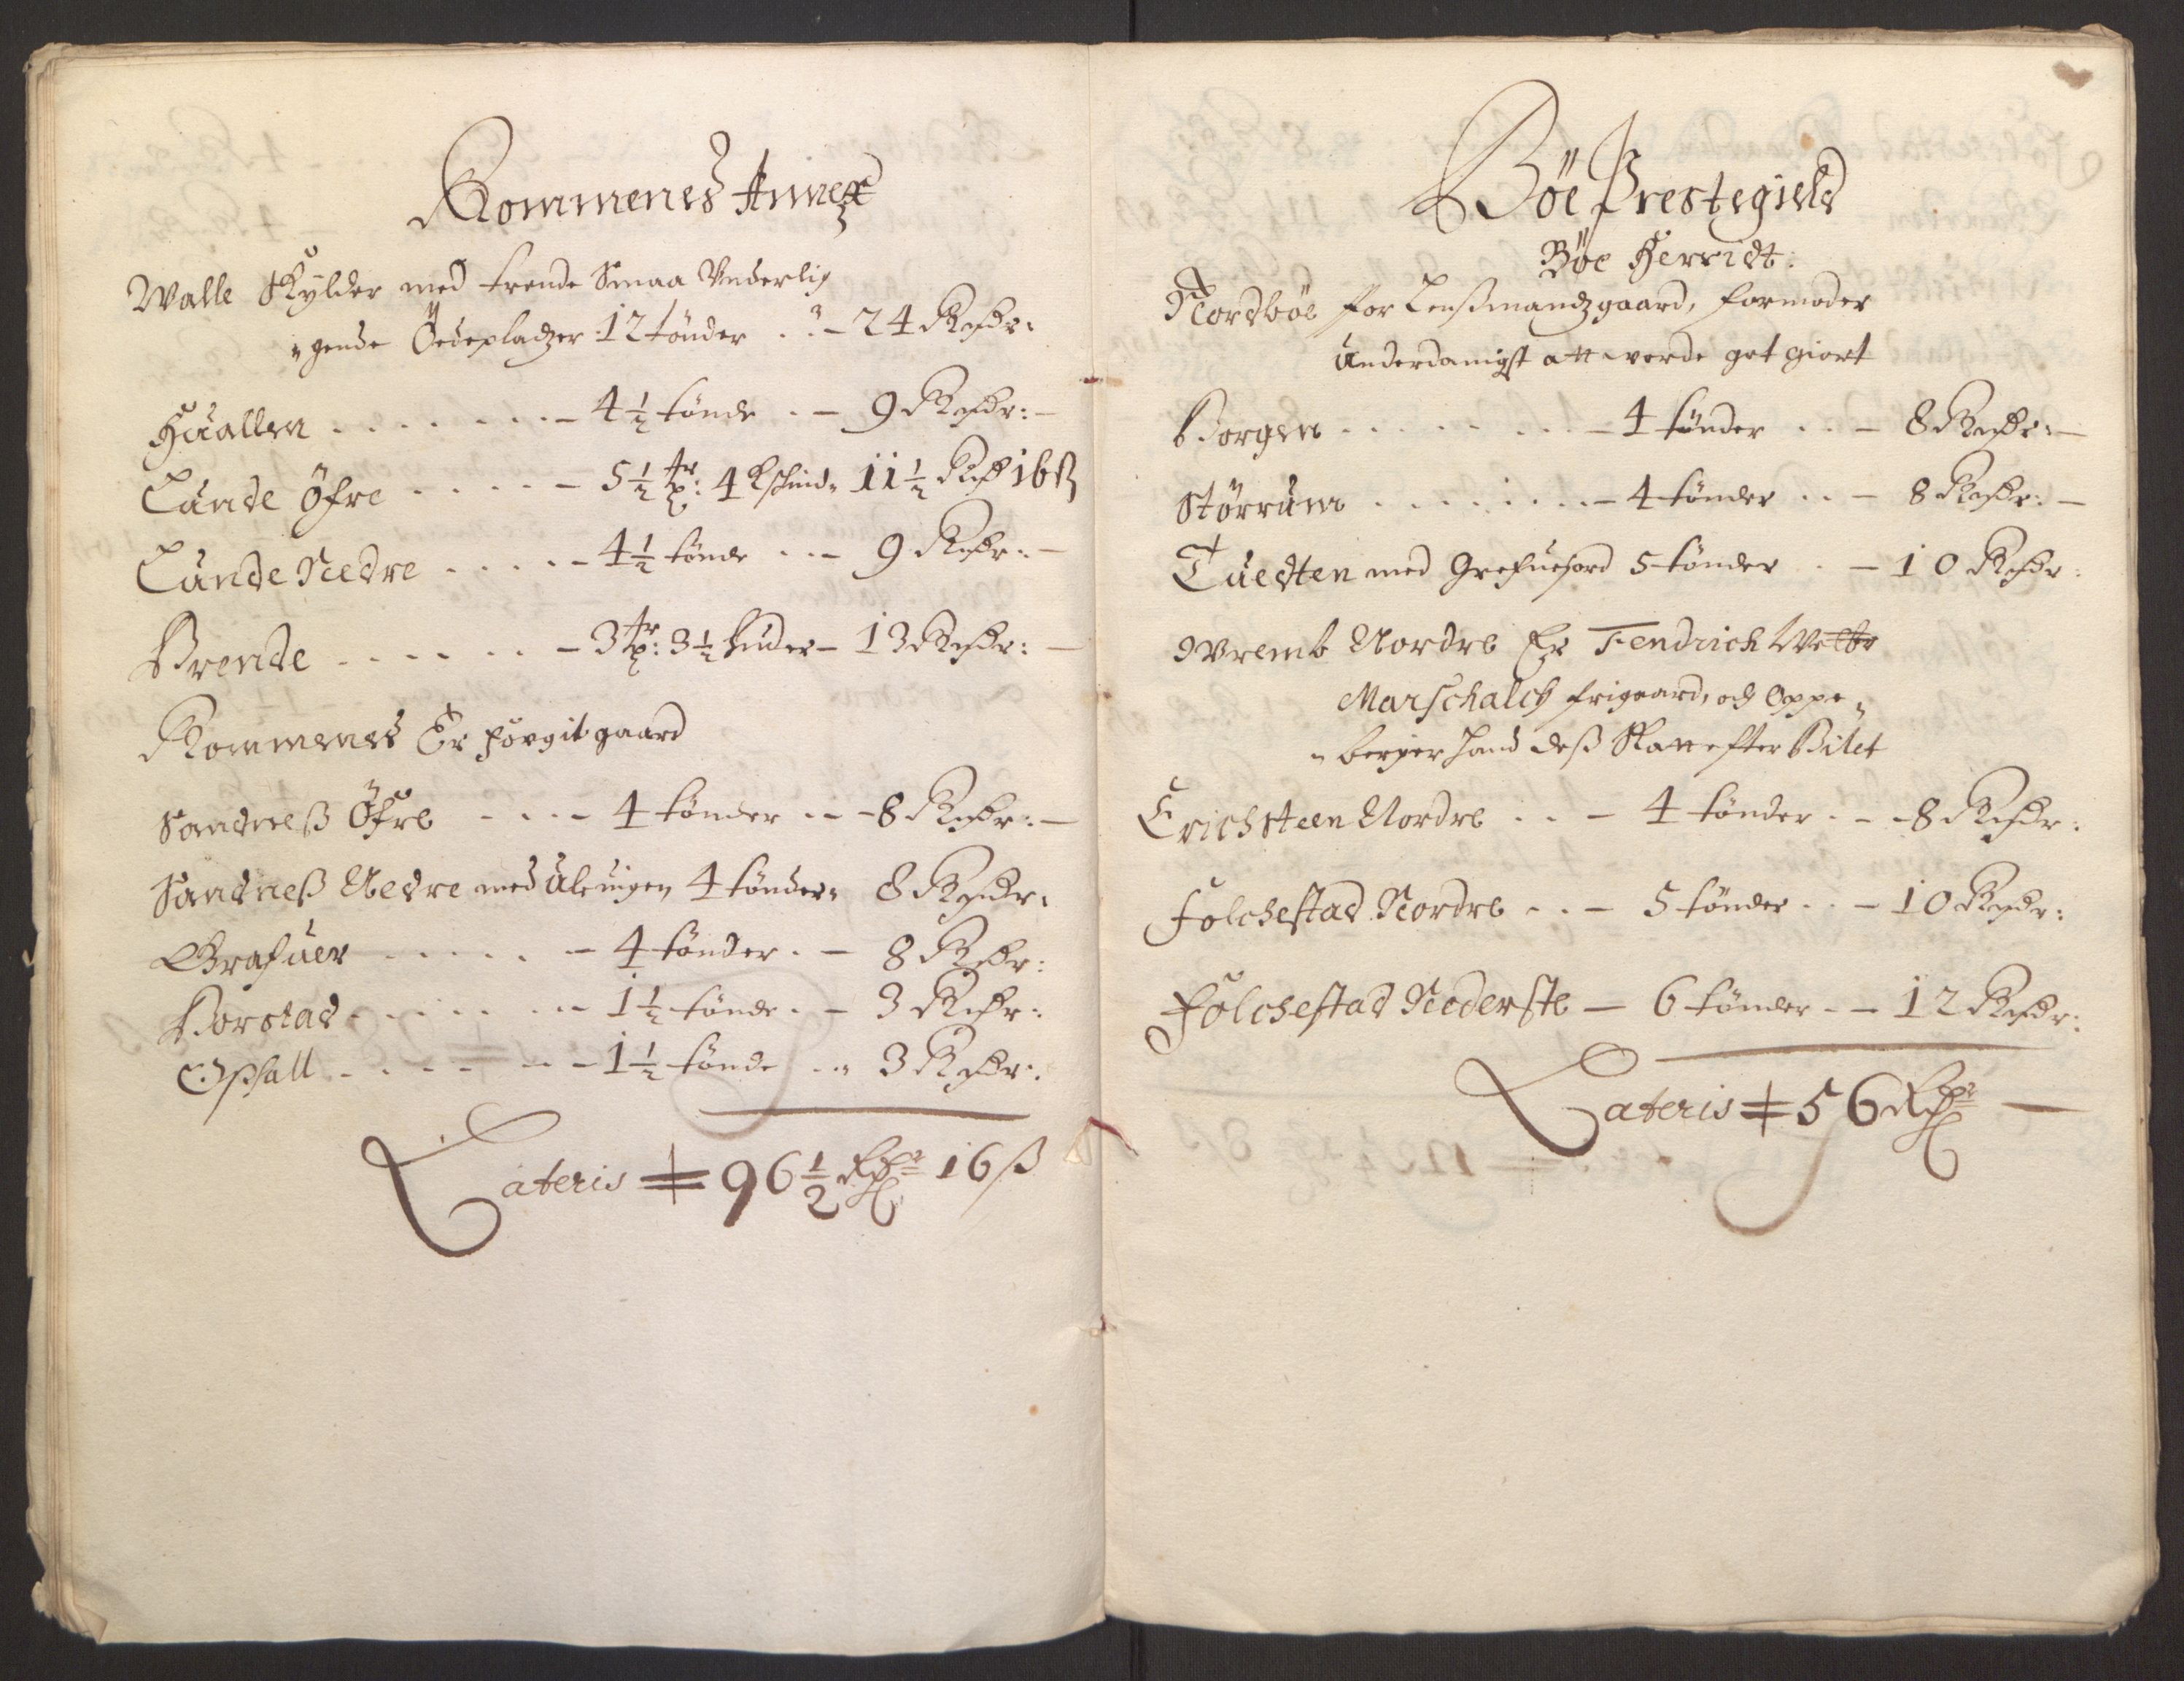 Rommenes Annex
Walle Skylder med trende Smaa Underlig
gende Ödepladzer 12 tönder - 24 Rixdr:
Huallen - 4½ tönde - 9 Rixdr:
Lunde Öfre - 5½ tr: 4 kschind 11½ Rixd 16ß
Lunde Nedre - 4½ tönde - 9 Rixdr:
Brende - 3 tr: 3½ huder - 13 Rixdr:
Rommenes Er gaard
Sandneß Öfre - 4 tönder - 8 Rixdr:
Sandneß Nedre med 4 tönder 8 Rixdr:
Grafuer - 4 tönder - 8 Rixdr:
Borstad - 1½ tönde - 3 Rixdr:
Opsall - 1½ tönde - 3 Rixdr:
Lateris 96½ Rdr 16ß
Böe Prestegield
Böe Herridt:
Nordböe for Lenßmandzgaard, formoder
Underdanigst att worde got giort
Borgen - 4 tönder - 8 Rixdr:
Störrum - 4 tönder - 8 Rixdr:
Tuedten med Grefuefiord 5 tönder - 10 Rixdr:
Wremb Nordre Er Fendrich
Marschalchs frigaard, och Oppe
berger hand deß Skatt efter Bilet
Erichsteen Nordre - 4 tönder - 8 Rixdr:
Folchestad Nordre - 5 tönder - 10 Rixdr:
Folchestad Nederste - 6 tönder - 12 Rixdr:
Lateris 56 Rdr